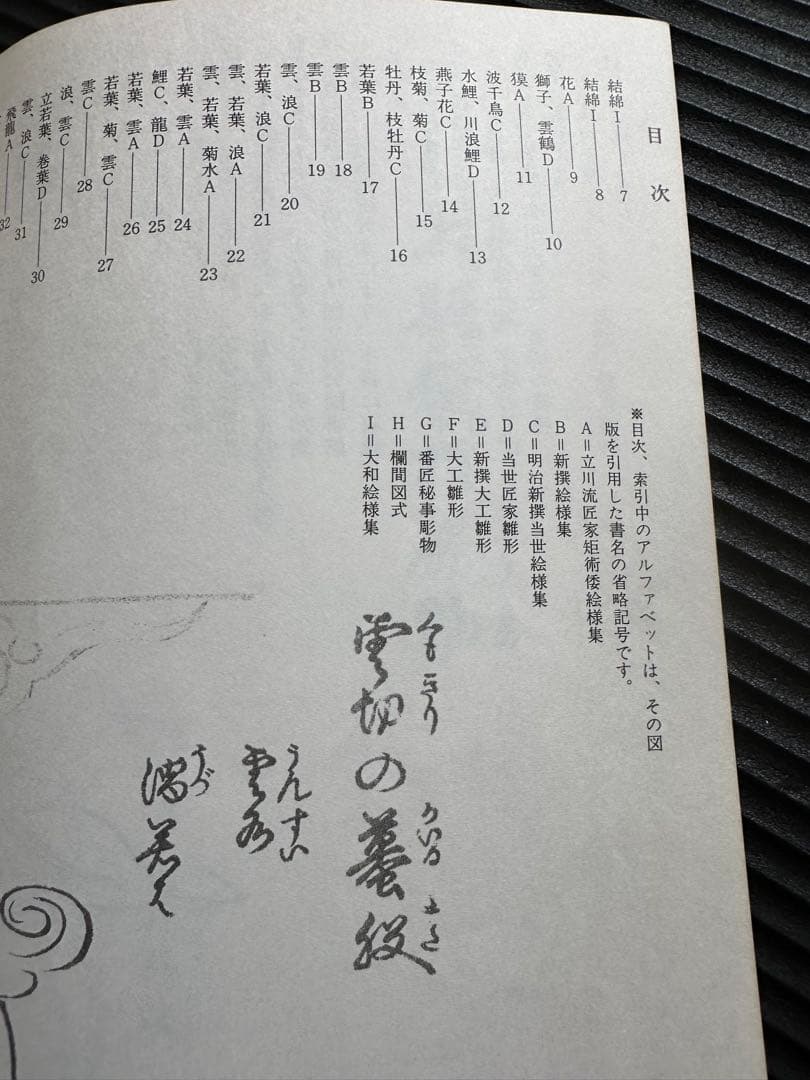 目次
結綿I——7
結綿I——8
花A——9
獅子、雲鶴D——10
獏A——11
波千鳥C——12
水鯉、川浪鯉D——13
燕子花C——14
枝菊、菊C——15
牡丹、枝牡丹C——16
若葉B——17
雲B——18
雲B——19
雲、浪C——20
若葉、浪C——21
雲、若葉、浪A——22
雲、若葉、菊水A——23
若葉、雲A——24
鯉C、龍D——25
若葉、雲A——26
若葉、菊、雲C——27
雲C——28
浪、雲C——29
立若葉、巻葉D——30
雲、浪C——31
飛龍A——32
※目次、索引中のアルファベットは、その図
版を引用した書名の省略記号です。
A=立川流匠家矩術倭絵様集
B=新撰絵様集
C=明治新撰当世絵様集
D=当世匠家雛形
E=新撰大工雛形
F=大工雛形
G=番匠秘事彫物
H=欄間図式
I=大和絵様集
くもきり かいるまた
雲切の蟇股
うんすい
雲水
うづ